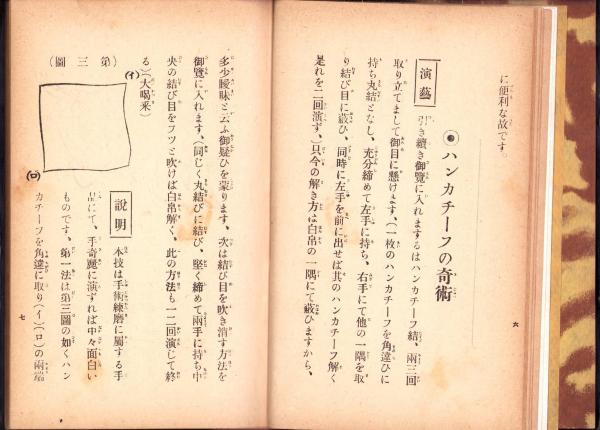 に便利な故です
◉ハンカチーフの奇術
演藝
引き續き御覽に入れまするはハンカチーフ結、兩三回
取り立てまして御目に懸けます、(一枚のハンカチーフを角違ひに
持ち丸結となし、充分締めて左手に持ち、右手にて他の一隅を取
り結び目に蔽ひ、同時に左手を前に出せば其のハンカチーフ解く
是れを二回演ず、)只今の解き方は白帛の一隅にて蔽ひますから、
六
多少曖昧と云ふ御疑ひを蒙ります、次は結び目を吹き消す方法を
御覽に入れます、(同じく丸結びに結び、堅く締めて兩手に持ち中
央の結び目をフツと吹けば白帛解く、此の方法も一二回演じて終
る)(大喝釆)
(第三圖)
(イ)
(ロ)
説明
本技は手術練磨に屬する手
品にて、手奇麗に演ずれば中々面白い
ものです、第一法は第三圖の如くハン
カチーフを角違に取り(イ)(ロ)の兩端
七